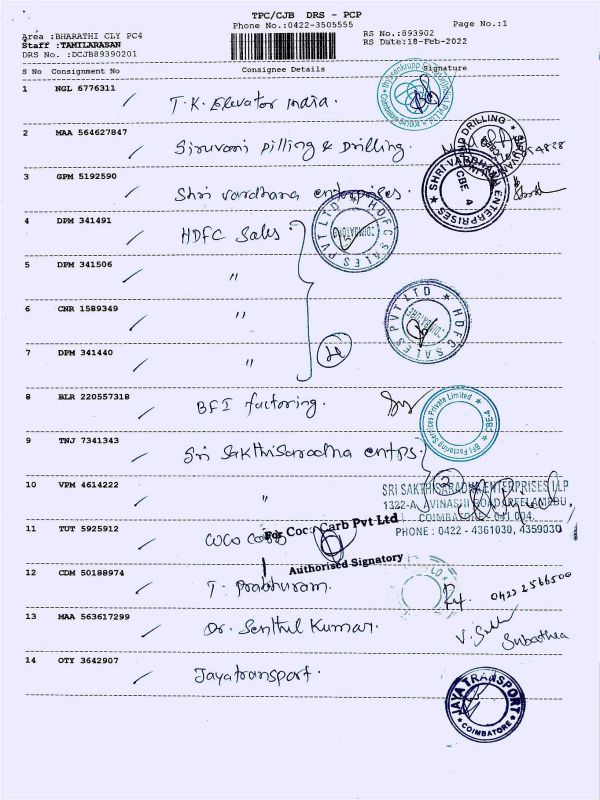 TPC/CJB DRS - PCP
Phone No.:0422-3505555
Page No.:1
Area :BHARATHI CLY PC4
RS No.:893902
Staff :TAMILARASAN
RS Date:18-Feb-2022
DRS No. :DCJB89390201
S No Consignment No Consignee Details Signature
1 NGL 6776311 T.K. Elevator India.
2 MAA 564627847 Siruvani Pilling & Drilling.
3 GPM 5192590 Shri Vardhana enterprises.
SHRI VARDHANA ENTERPRISES CBE 4
4 DPM 341491 HDFC Sales
HDFC SALES PVT LTD COIMBATORE
5 DPM 341506 "
6 CNR 1589349 "
HDFC SALES PVT LTD
7 DPM 341440 " 4
8 BLR 220557318 BFI factoring.
BFI Factoring Services Private Limited CBE-4
9 TNJ 7341343 Sri SakthiSaradha entps.
10 VPM 4614222 " 2
SRI SAKTHI SARADHA ENTERPRISES LLP
1322-A, AVINASHI ROAD, PEELAMEDU,
COIMBATORE - 641 004.
PHONE : 0422 - 4361030, 4359030
11 TUT 5925912 COCO Carb
For Coco Carb Pvt Ltd
Authorised Signatory
12 CDM 50188974 T. Prabhuram.
0422 2566500
13 MAA 563617299 Dr. Senthil Kumar.
Subathea
14 OTY 3642907 Jayatransport.
JAYA TRANSPORT COIMBATORE